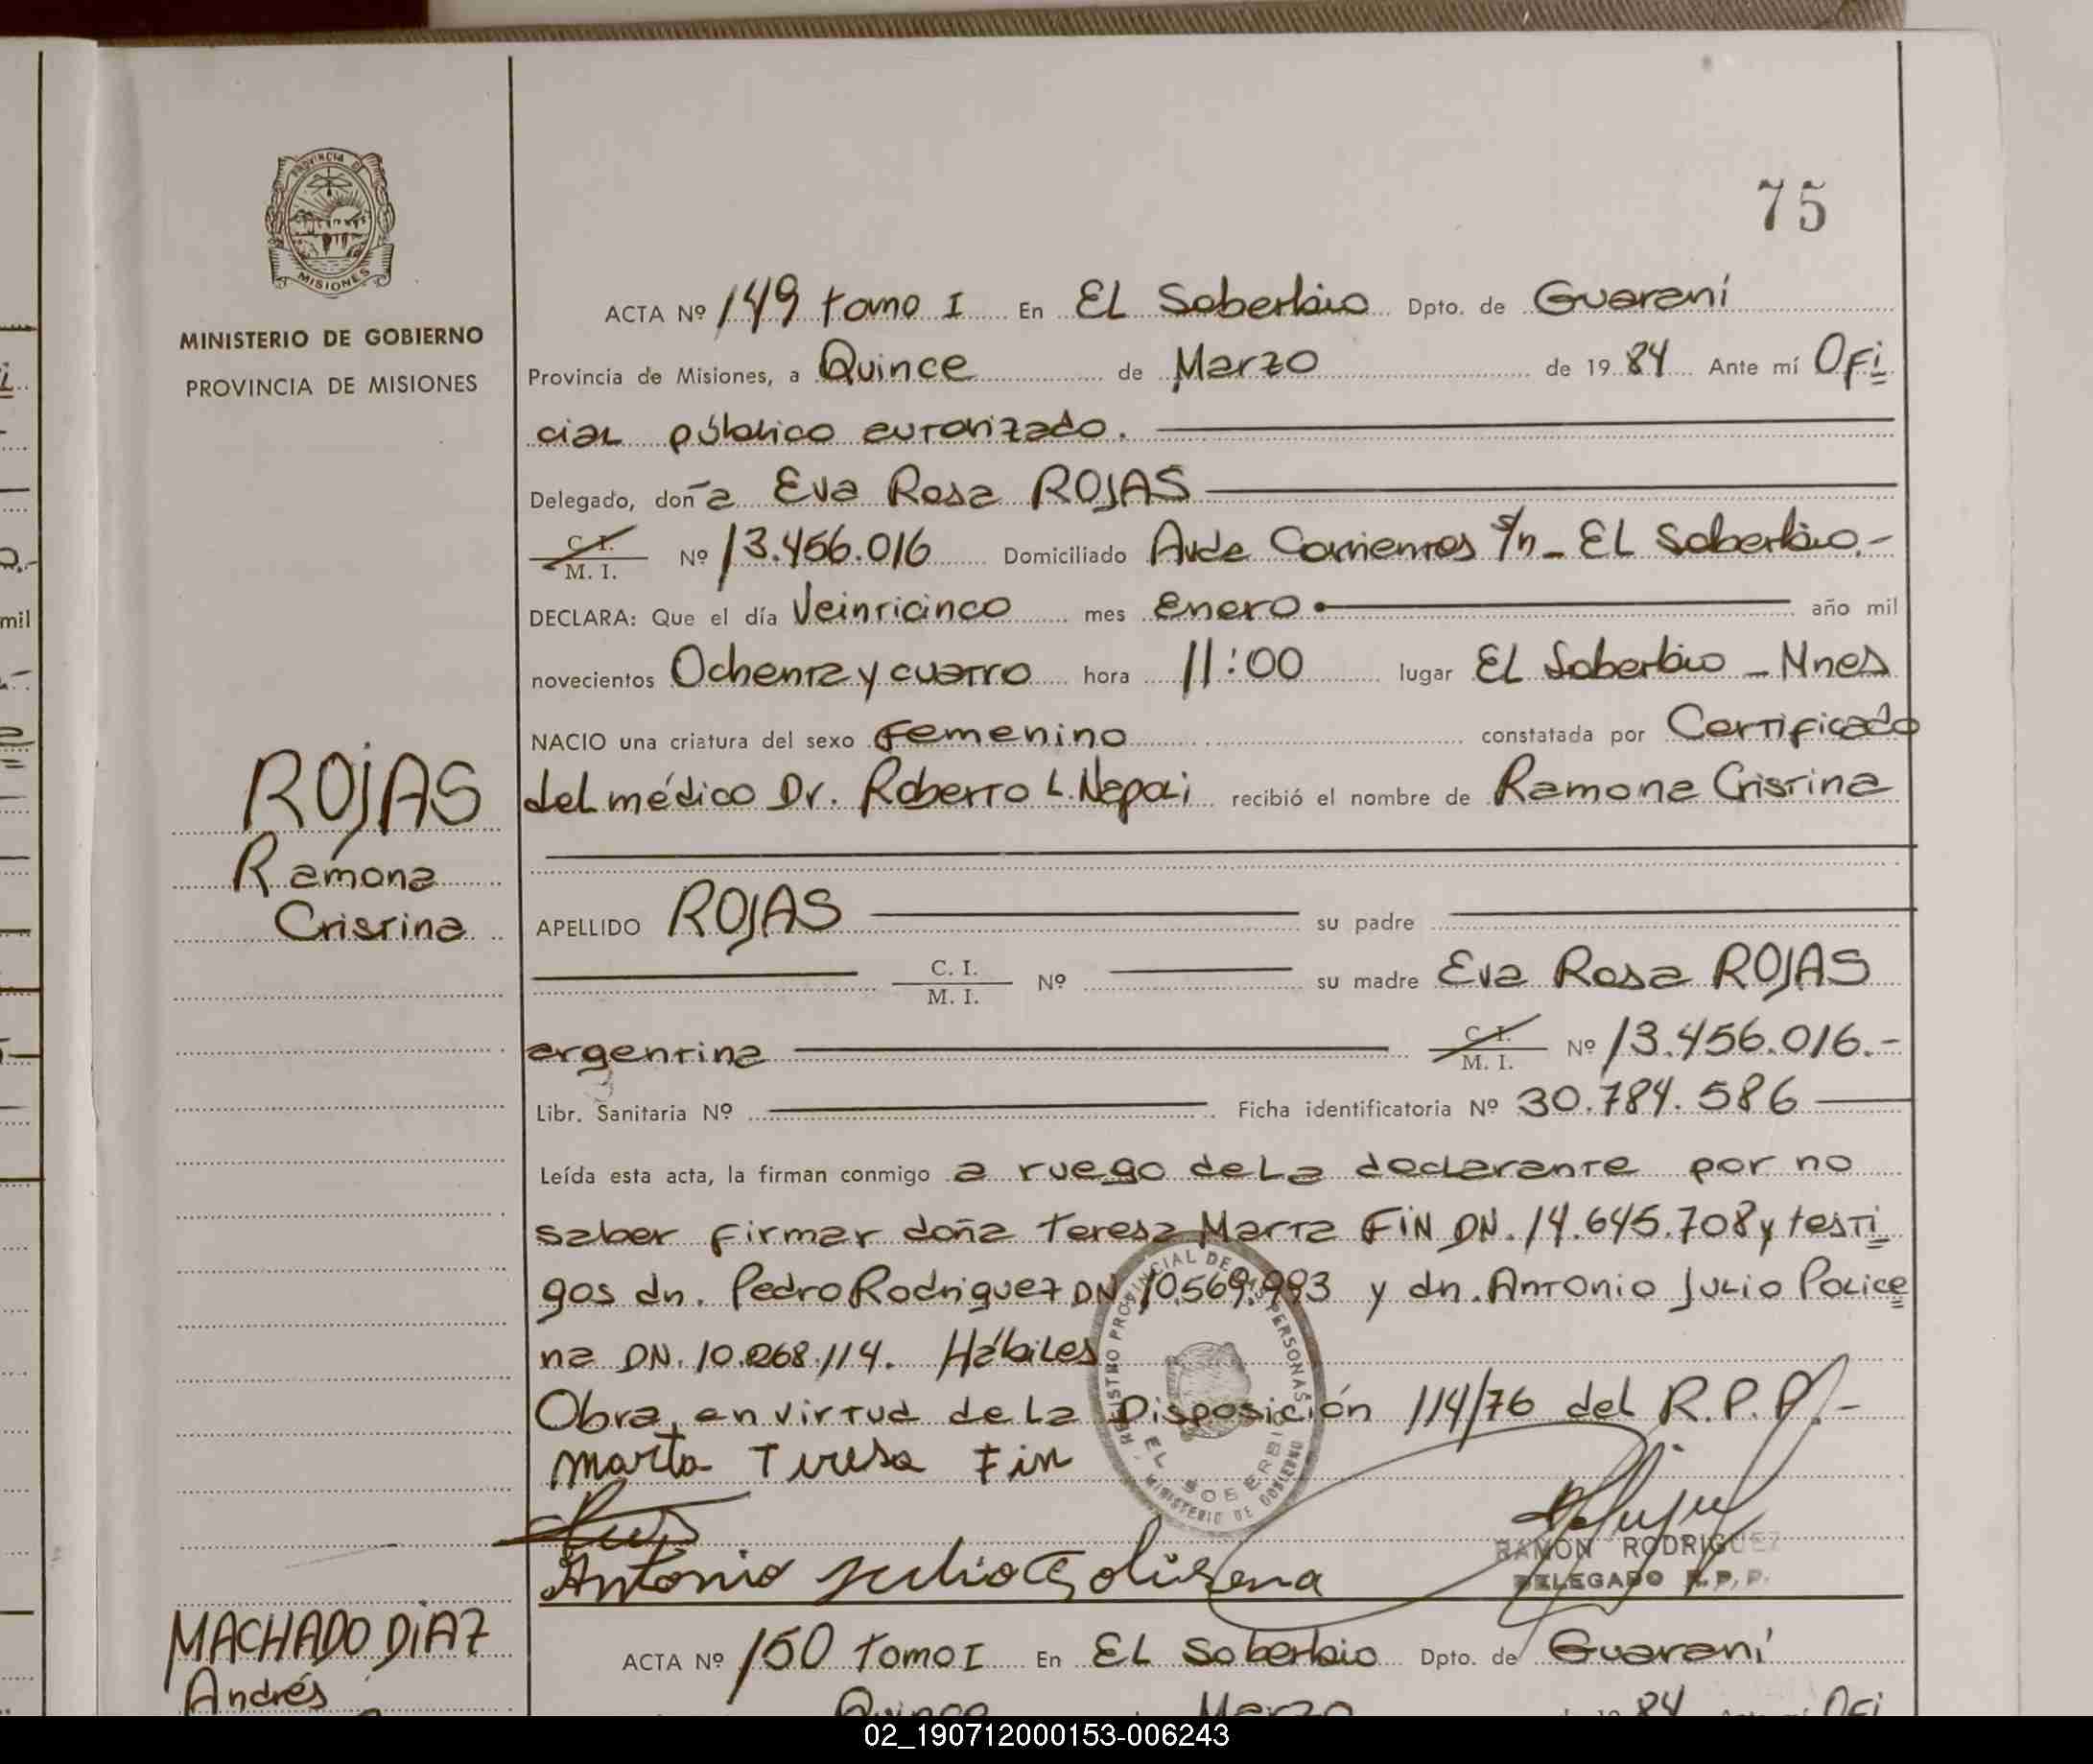 75
PROVINCIA DE
MISIONES
MINISTERIO DE GOBIERNO
PROVINCIA DE MISIONES
ACTA Nº 149 tomo I En EL Soberbio Dpto. de Guaraní
Provincia de Misiones, a Quince de Marzo de 1984 Ante mí Ofi
cial público autorizado.
Delegado, doña Eva Rosa ROJAS
C. I. / M. I. Nº 13.456.016 Domiciliado Avda Corrientes s/n - EL Soberbio.-
DECLARA: Que el día Veinticinco mes Enero año mil
novecientos Ochenta y cuatro hora 11:00 lugar EL Soberbio - Mnes
NACIO una criatura del sexo Femenino constatada por Certificado
del médico Dr. Roberto L. Napoi recibió el nombre de Ramona Cristina
ROJAS
Ramona
Cristina
APELLIDO ROJAS su padre
C. I. / M. I. Nº su madre Eva Rosa ROJAS
argentina C. I. / M. I. Nº 13.456.016.-
Libr. Sanitaria Nº Ficha identificatoria Nº 30.784.586
Leída esta acta, la firman conmigo a ruego de La declarante por no
saber firmar doña Teresa Marta FIN DN. 14.645.708 y testi
gos dn. Pedro Rodriguez DN 10.569.993 y dn. Antonio Julio Police
na DN. 10.268.114. Hábiles
Obra, en virtud de La Disposición 114/76 del R.P.P.-
Marta Teresa Fin
Antonio Julio
REGISTRO PROVINCIAL DE LAS PERSONAS
EL SOBERBIO
MINISTERIO DE GOBIERNO
RAMON RODRIGUEZ
DELEGADO R.P.P.
MACHADO DIAZ
Andrés
ACTA Nº 150 tomo I En EL Soberbio Dpto. de Guaraní
Quince Marzo 84 Ofi
mil
02_190712000153-006243